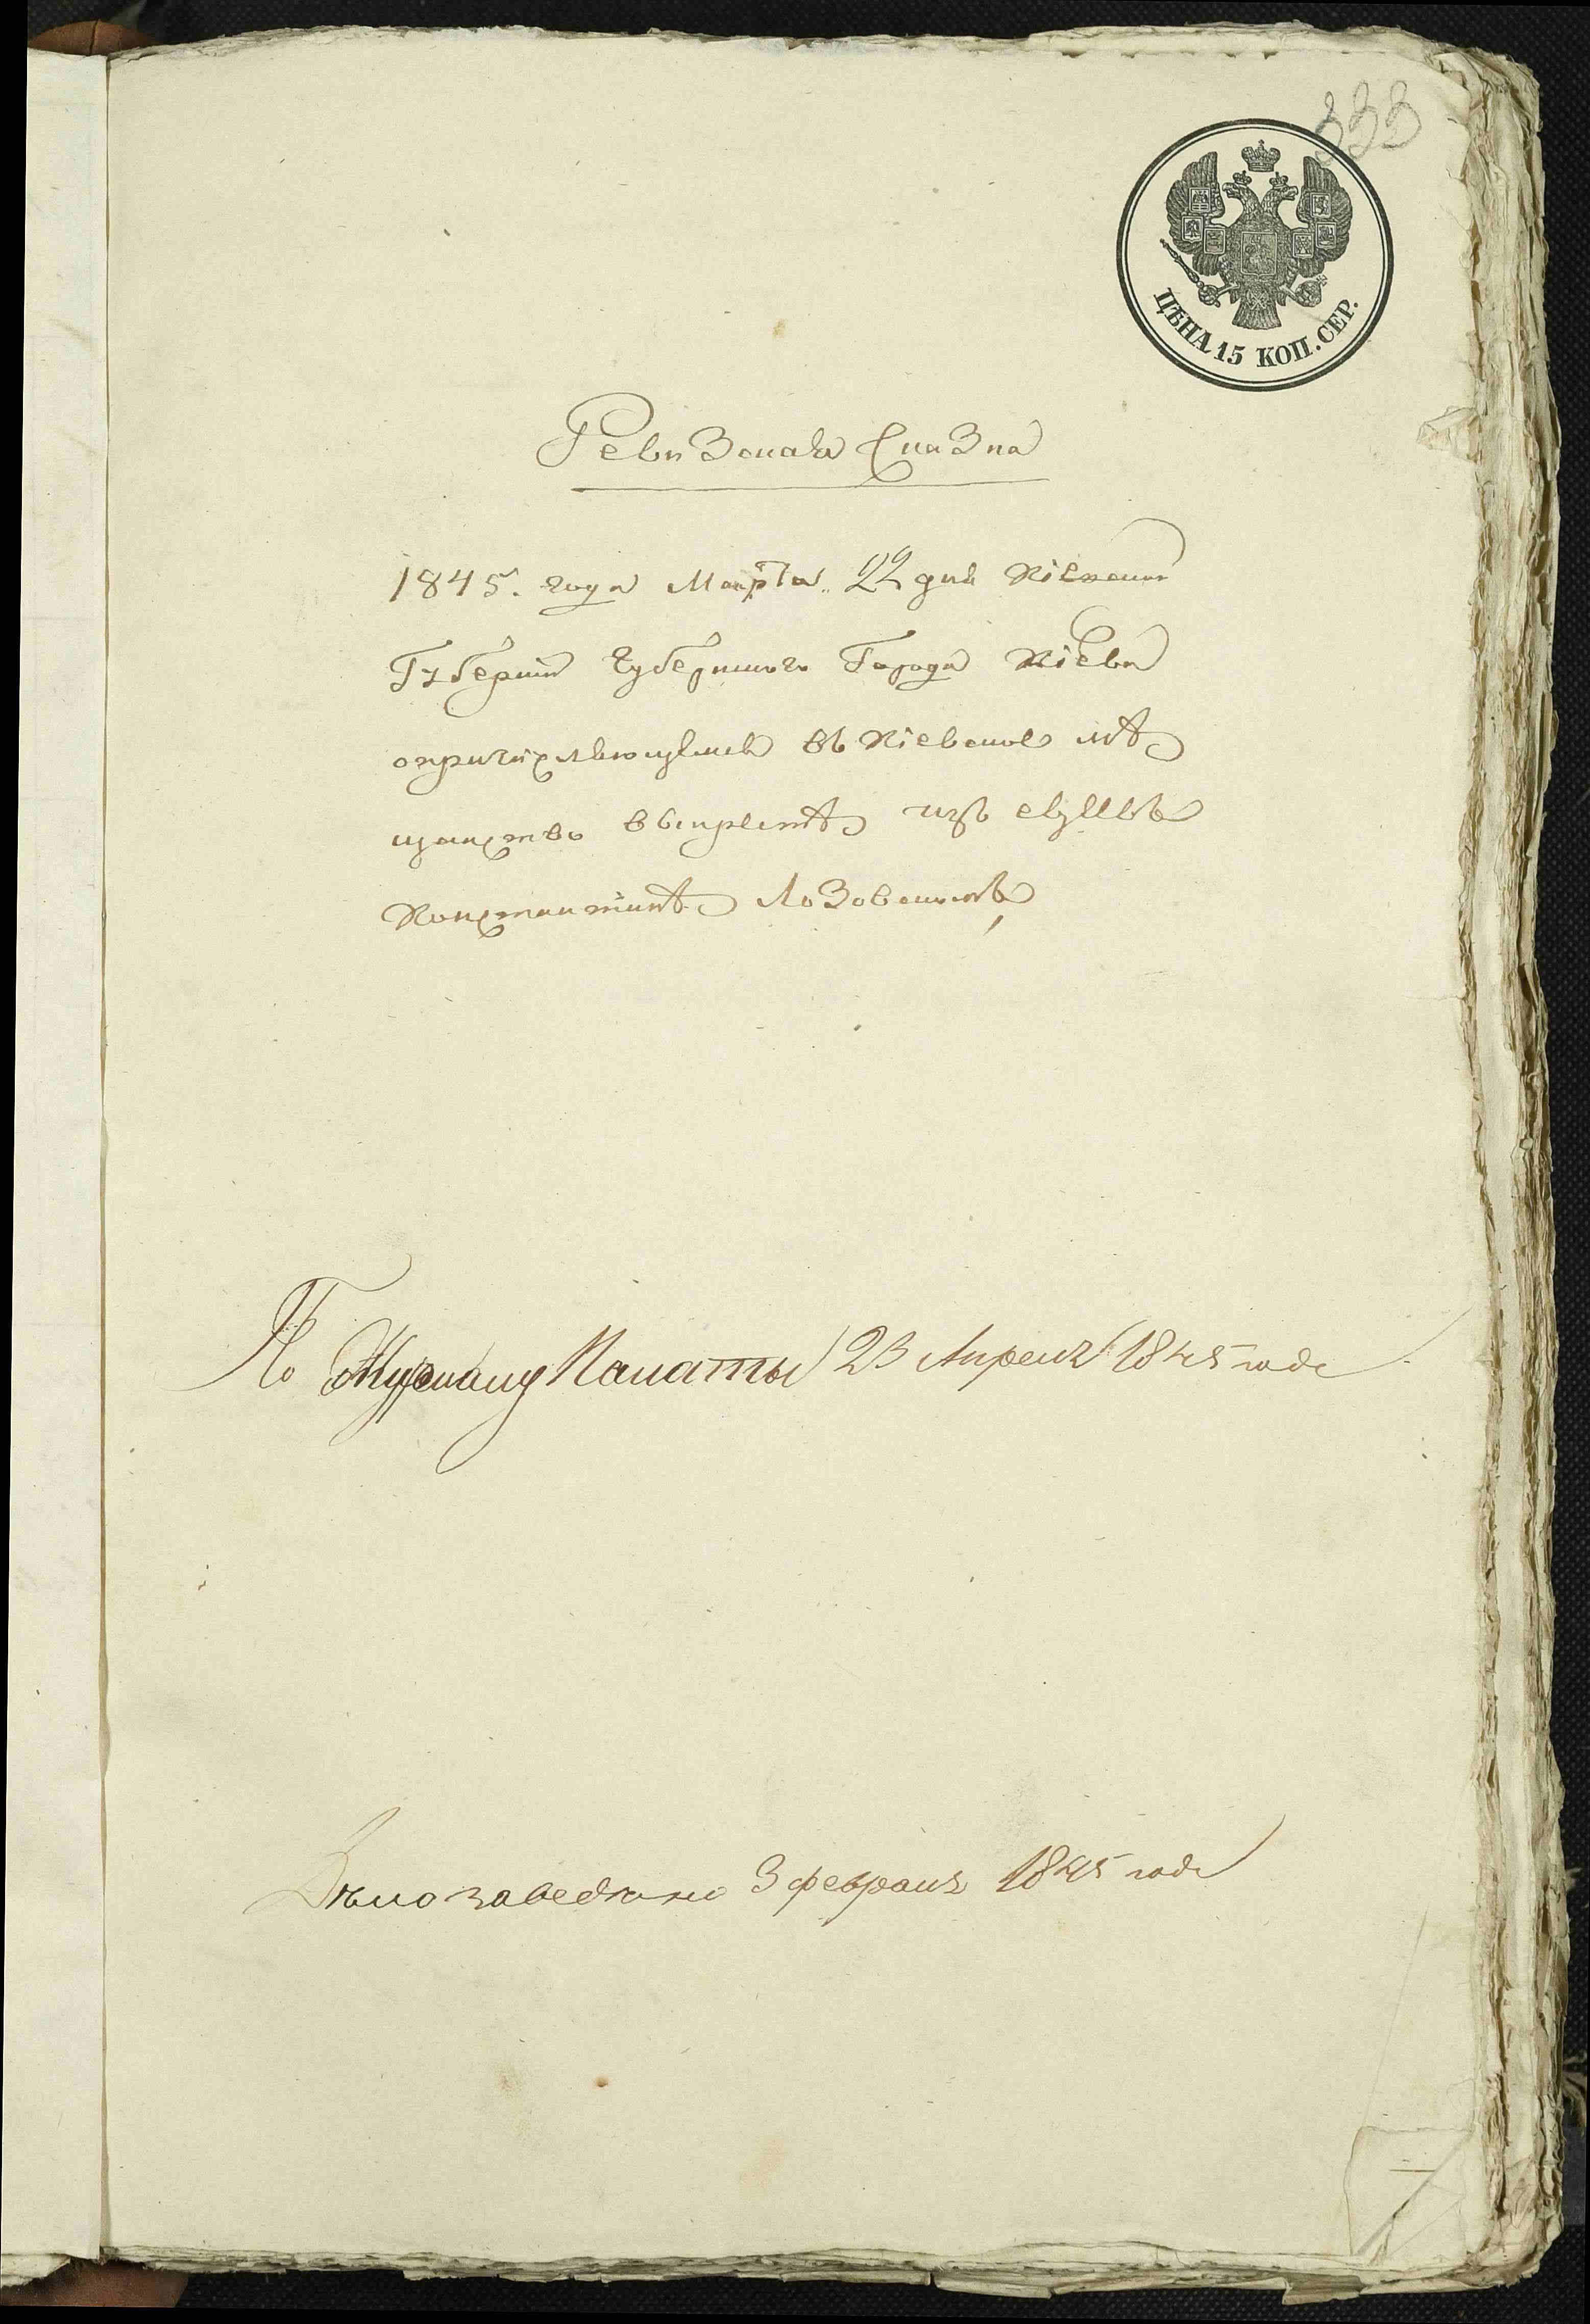 333
ЦѢНА 15 КОП. СЕР.
Ревизская Сказка
1845. года Марта 22 дня Кіевской
Губерніи Губернскаго Города Кіева
о причисляющемся въ Кіевское мѣ
щанство выкрестѣ изъ евреевъ
Константинѣ Лозовскомъ
По Журналу Палаты 23 Апреля 1845 года
Дѣло заведено 3 февраля 1845 года